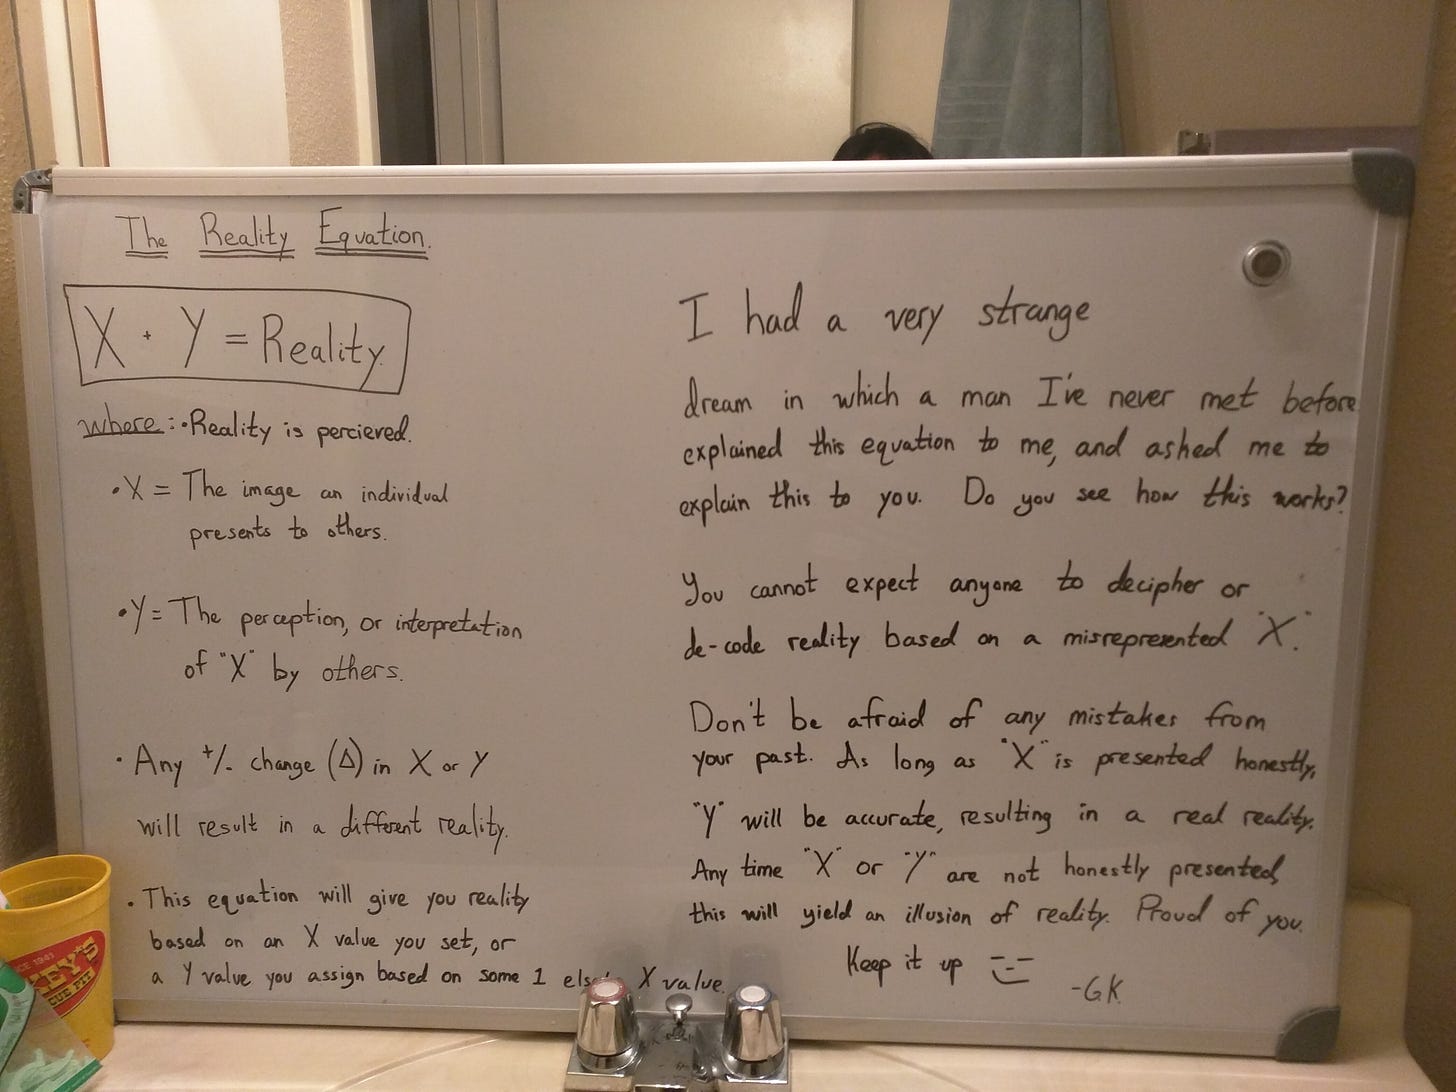 The Reality Equation.
X · Y = Reality.
where: • Reality is percieved.
• X = The image an individual
presents to others.
• Y = The perception, or interpretation
of "X" by others.
• Any +/- change (Δ) in X or Y
will result in a different reality.
• This equation will give you reality
based on an X value you set, or
a Y value you assign based on some 1 else's X value.
I had a very strange
dream in which a man I've never met before
explained this equation to me, and asked me to
explain this to you. Do you see how this works?
You cannot expect anyone to decipher or
de-code reality based on a misrepresented "X".
Don't be afraid of any mistakes from
your past. As long as "X" is presented honestly,
"Y" will be accurate, resulting in a real reality.
Any time "X" or "Y" are not honestly presented,
this will yield an illusion of reality. Proud of you.
Keep it up
-G.K.
SINCE 1941